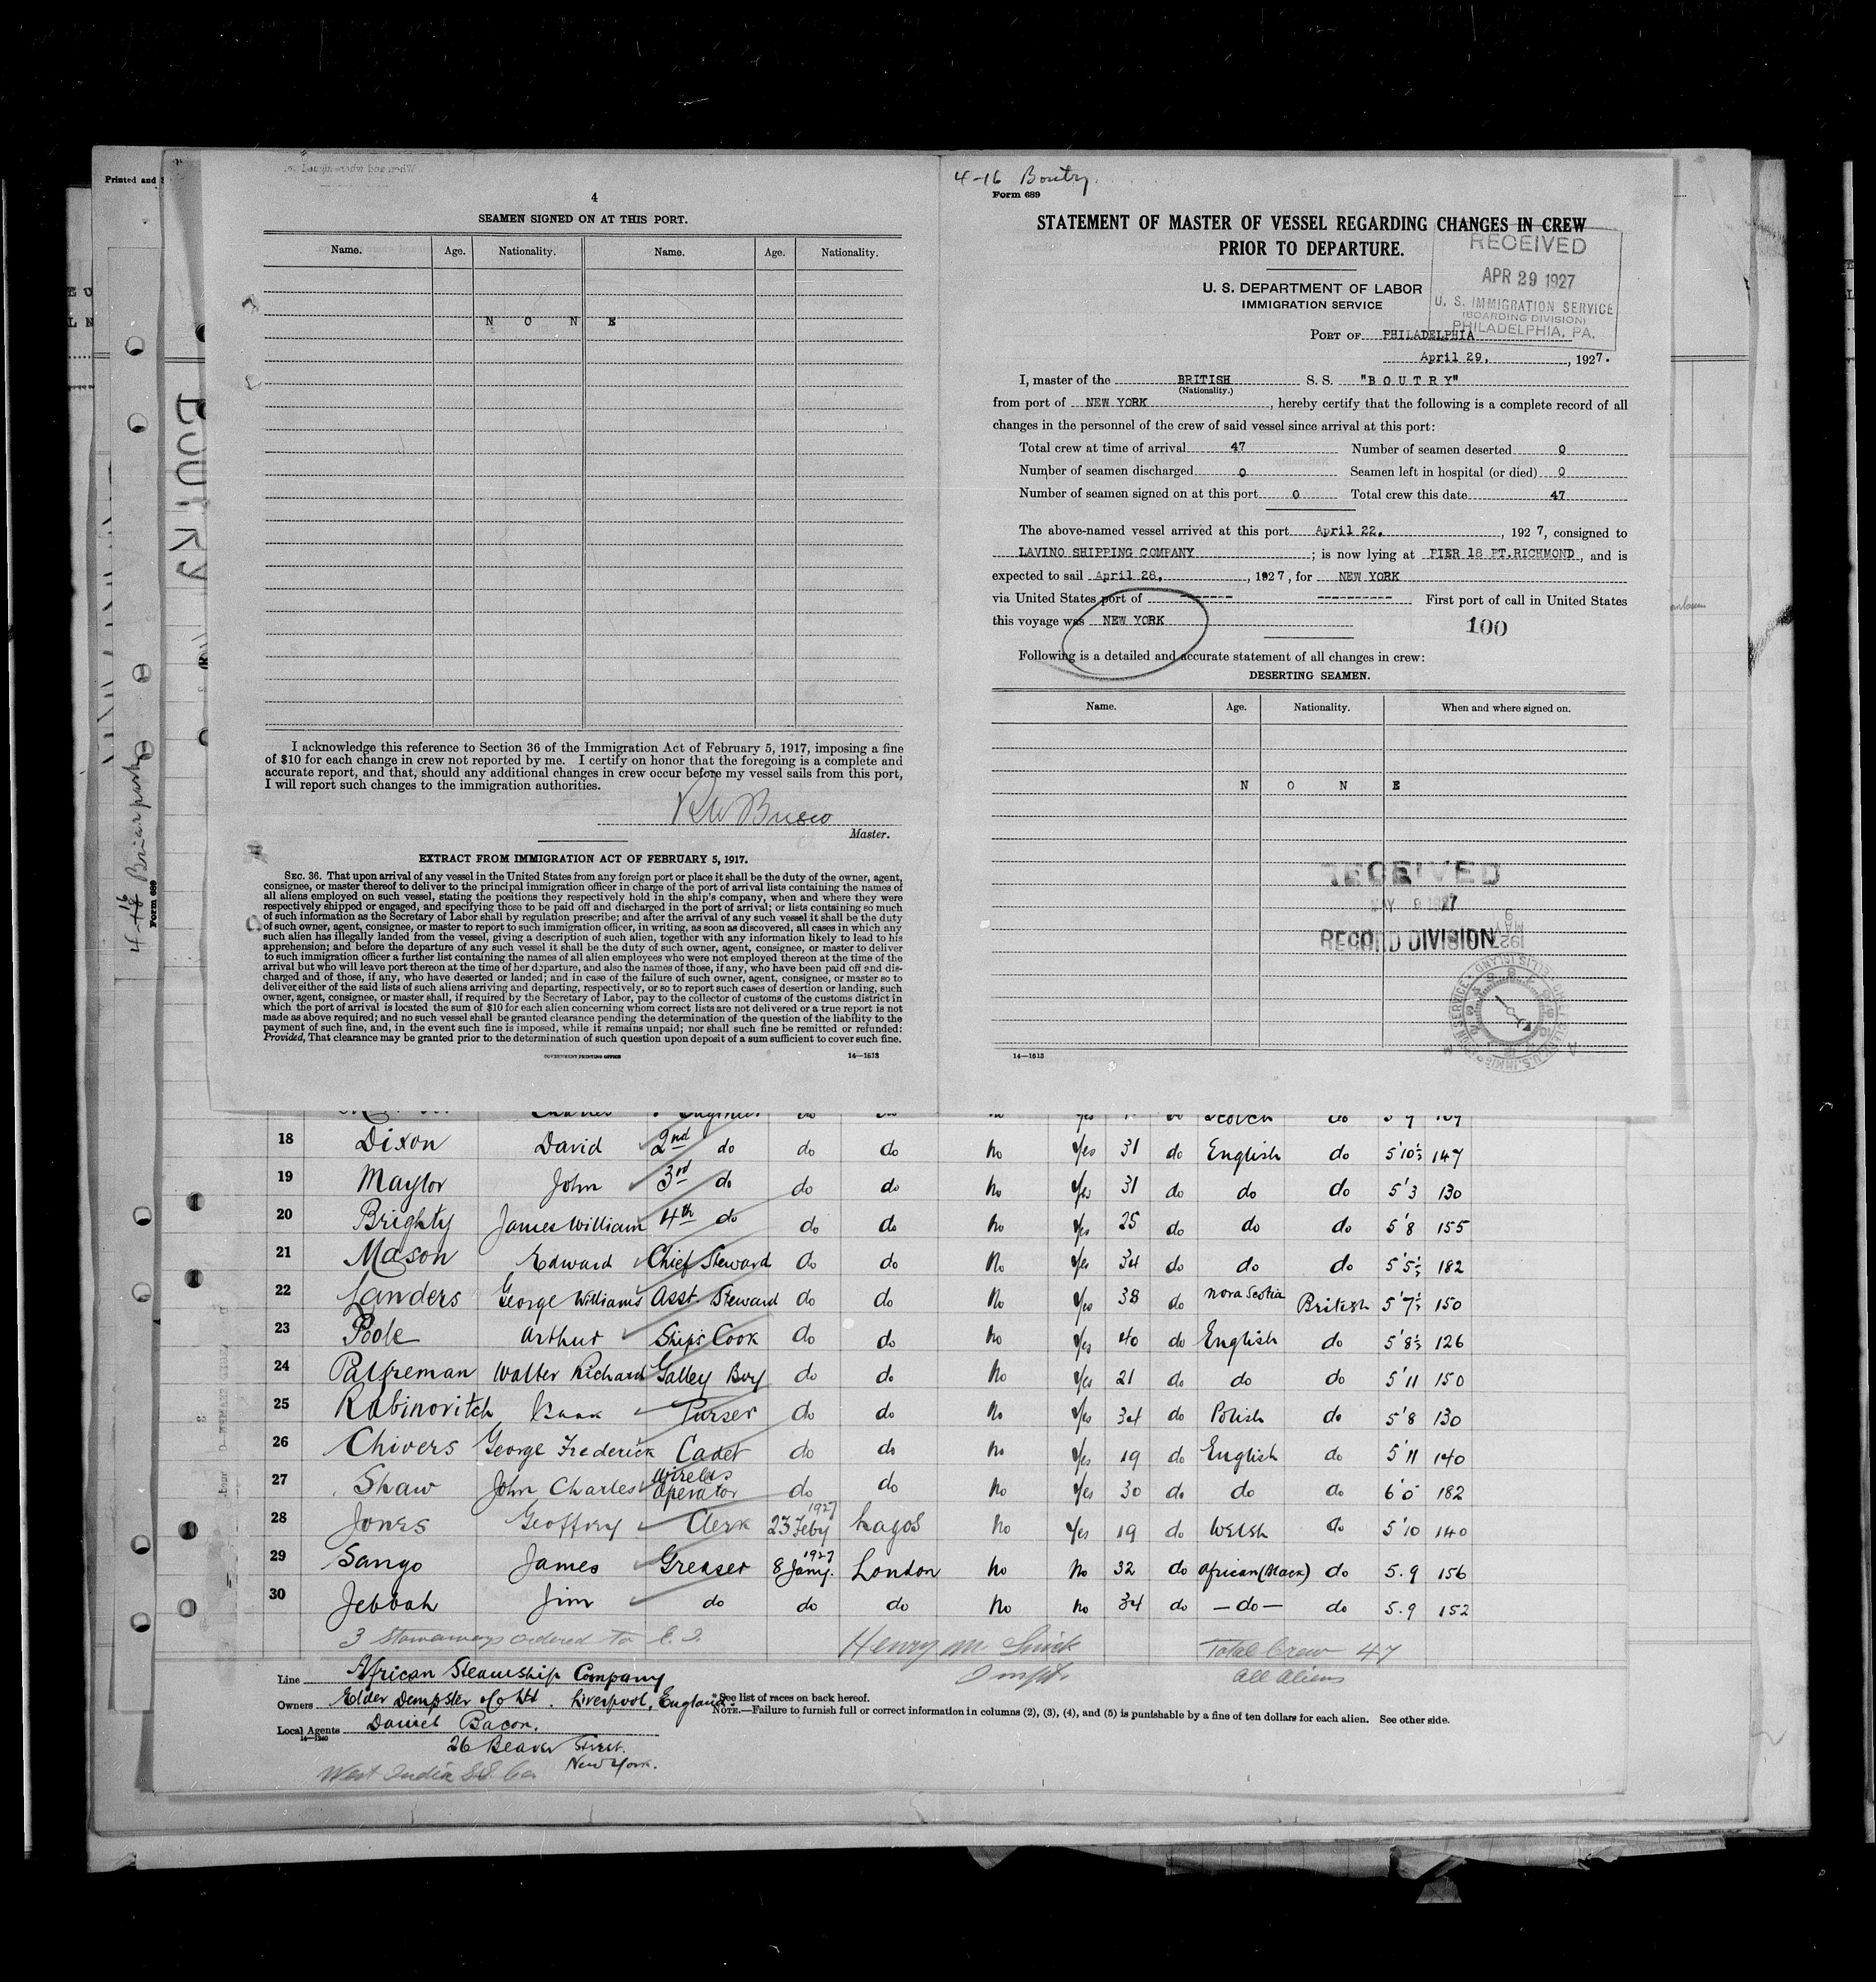 Printed and
4
SEAMEN SIGNED ON AT THIS PORT.
Name. Age. Nationality. Name. Age. Nationality.
N O N E
I acknowledge this reference to Section 36 of the Immigration Act of February 5, 1917, imposing a fine
of $10 for each change in crew not reported by me. I certify on honor that the foregoing is a complete and
accurate report, and that, should any additional changes in crew occur before my vessel sails from this port,
I will report such changes to the immigration authorities.
Master.
EXTRACT FROM IMMIGRATION ACT OF FEBRUARY 5, 1917.
SEC. 36. That upon arrival of any vessel in the United States from any foreign port or place it shall be the duty of the owner, agent,
consignee, or master thereof to deliver to the principal immigration officer in charge of the port of arrival lists containing the names of
all aliens employed on such vessel, stating the positions they respectively hold in the ship's company, when and where they were
respectively shipped or engaged, and specifying those to be paid off and discharged in the port of arrival; or lists containing so much
of such information as the Secretary of Labor shall by regulation prescribe; and after the arrival of any such vessel it shall be the duty
of such owner, agent, consignee, or master to report to such immigration officer, in writing, as soon as discovered, all cases in which any
such alien has illegally landed from the vessel, giving a description of such alien, together with any information likely to lead to his
apprehension; and before the departure of any such vessel it shall be the duty of such owner, agent, consignee, or master to deliver
to such immigration officer a further list containing the names of all alien employees who were not employed thereon at the time of the
arrival but who will leave port thereon at the time of her departure, and also the names of those, if any, who have been paid off and dis-
charged and of those, if any, who have deserted or landed; and in case of the failure of such owner, agent, consignee, or master so to
deliver either of the said lists of such aliens arriving and departing, respectively, or so to report such cases of desertion or landing, such
owner, agent, consignee, or master shall, if required by the Secretary of Labor, pay to the collector of customs of the customs district in
which the port of arrival is located the sum of $10 for each alien concerning whom correct lists are not delivered or a true report is not
made as above required; and no such vessel shall be granted clearance pending the determination of the question of the liability to the
payment of such fine, and, in the event such fine is imposed, while it remains unpaid; nor shall such fine be remitted or refunded:
Provided, That clearance may be granted prior to the determination of such question upon deposit of a sum sufficient to cover such fine.
GOVERNMENT PRINTING OFFICE 14—1613
4-16 Boutry.
Form 689
STATEMENT OF MASTER OF VESSEL REGARDING CHANGES IN CREW
PRIOR TO DEPARTURE.
RECEIVED
APR 29 1927
U. S. IMMIGRATION SERVICE
(BOARDING DIVISION)
PHILADELPHIA, PA.
U. S. DEPARTMENT OF LABOR
IMMIGRATION SERVICE
PORT OF PHILADELPHIA
April 29, , 1927.
I, master of the BRITISH S. S. "B O U T R Y"
(Nationality.)
from port of NEW YORK , hereby certify that the following is a complete record of all
changes in the personnel of the crew of said vessel since arrival at this port:
Total crew at time of arrival 47 Number of seamen deserted 0
Number of seamen discharged 0 Seamen left in hospital (or died) 0
Number of seamen signed on at this port 0 Total crew this date 47
The above-named vessel arrived at this port April 22. , 1927, consigned to
LAVINO SHIPPING COMPANY ; is now lying at PIER 18 PT.RICHMOND , and is
expected to sail April 28, , 1927, for NEW YORK
via United States port of ------- ---------- First port of call in United States
this voyage was NEW YORK
100
Following is a detailed and accurate statement of all changes in crew:
DESERTING SEAMEN.
Name. Age. Nationality. When and where signed on.
N O N E
RECEIVED
MAY 9 1927
RECORD DIVISION
14—1613
BOUTRY
4-16 Briarpark
Form 689
18 Dixon David 2nd do do do No Yes 31 do English do 5'10½ 147
19 Maylor John 3rd do do do No Yes 31 do do do 5'3 130
20 Brighty James William 4th do do do No Yes 25 do do do 5'8 155
21 Mason Edward Chief Steward do do No Yes 34 do do do 5'5½ 182
22 Landers George Williams Asst. Steward do do No Yes 38 do Nova Scotia British 5'7½ 150
23 Poole Arthur Ship's Cook do do No Yes 40 do English do 5'8½ 126
24 Palfreman Walter Richard Galley Boy do do No Yes 21 do do do 5'11 150
25 Rabinovitch Isaak Purser do do No Yes 34 do Polish do 5'8 130
26 Chivers George Frederick Cadet do do No Yes 19 do English do 5'11 140
27 Shaw John Charles Wireless Operator do do No Yes 30 do do do 6'0 182
28 Jones Geoffrey Clerk 23 Feby 1927 Lagos No Yes 19 do Welsh do 5'10 140
29 Sango James Greaser 8 Jany. 1927 London No No 32 do African (Black) do 5.9 156
30 Jebbah Jim do do do No No 34 do —do— do 5.9 152
3 Stowaways ordered to E. I. Henry M. Total Crew 47
Inspt. All Aliens
Line African Steamship Company
Owners Elder Dempster Co Ltd. Liverpool, England.
* See list of races on back hereof.
NOTE.—Failure to furnish full or correct information in columns (2), (3), (4), and (5) is punishable by a fine of ten dollars for each alien. See other side.
Local Agents Daniel Bacon.
14—1240
26 Beaver Street.
New York.
West India S.S. Co